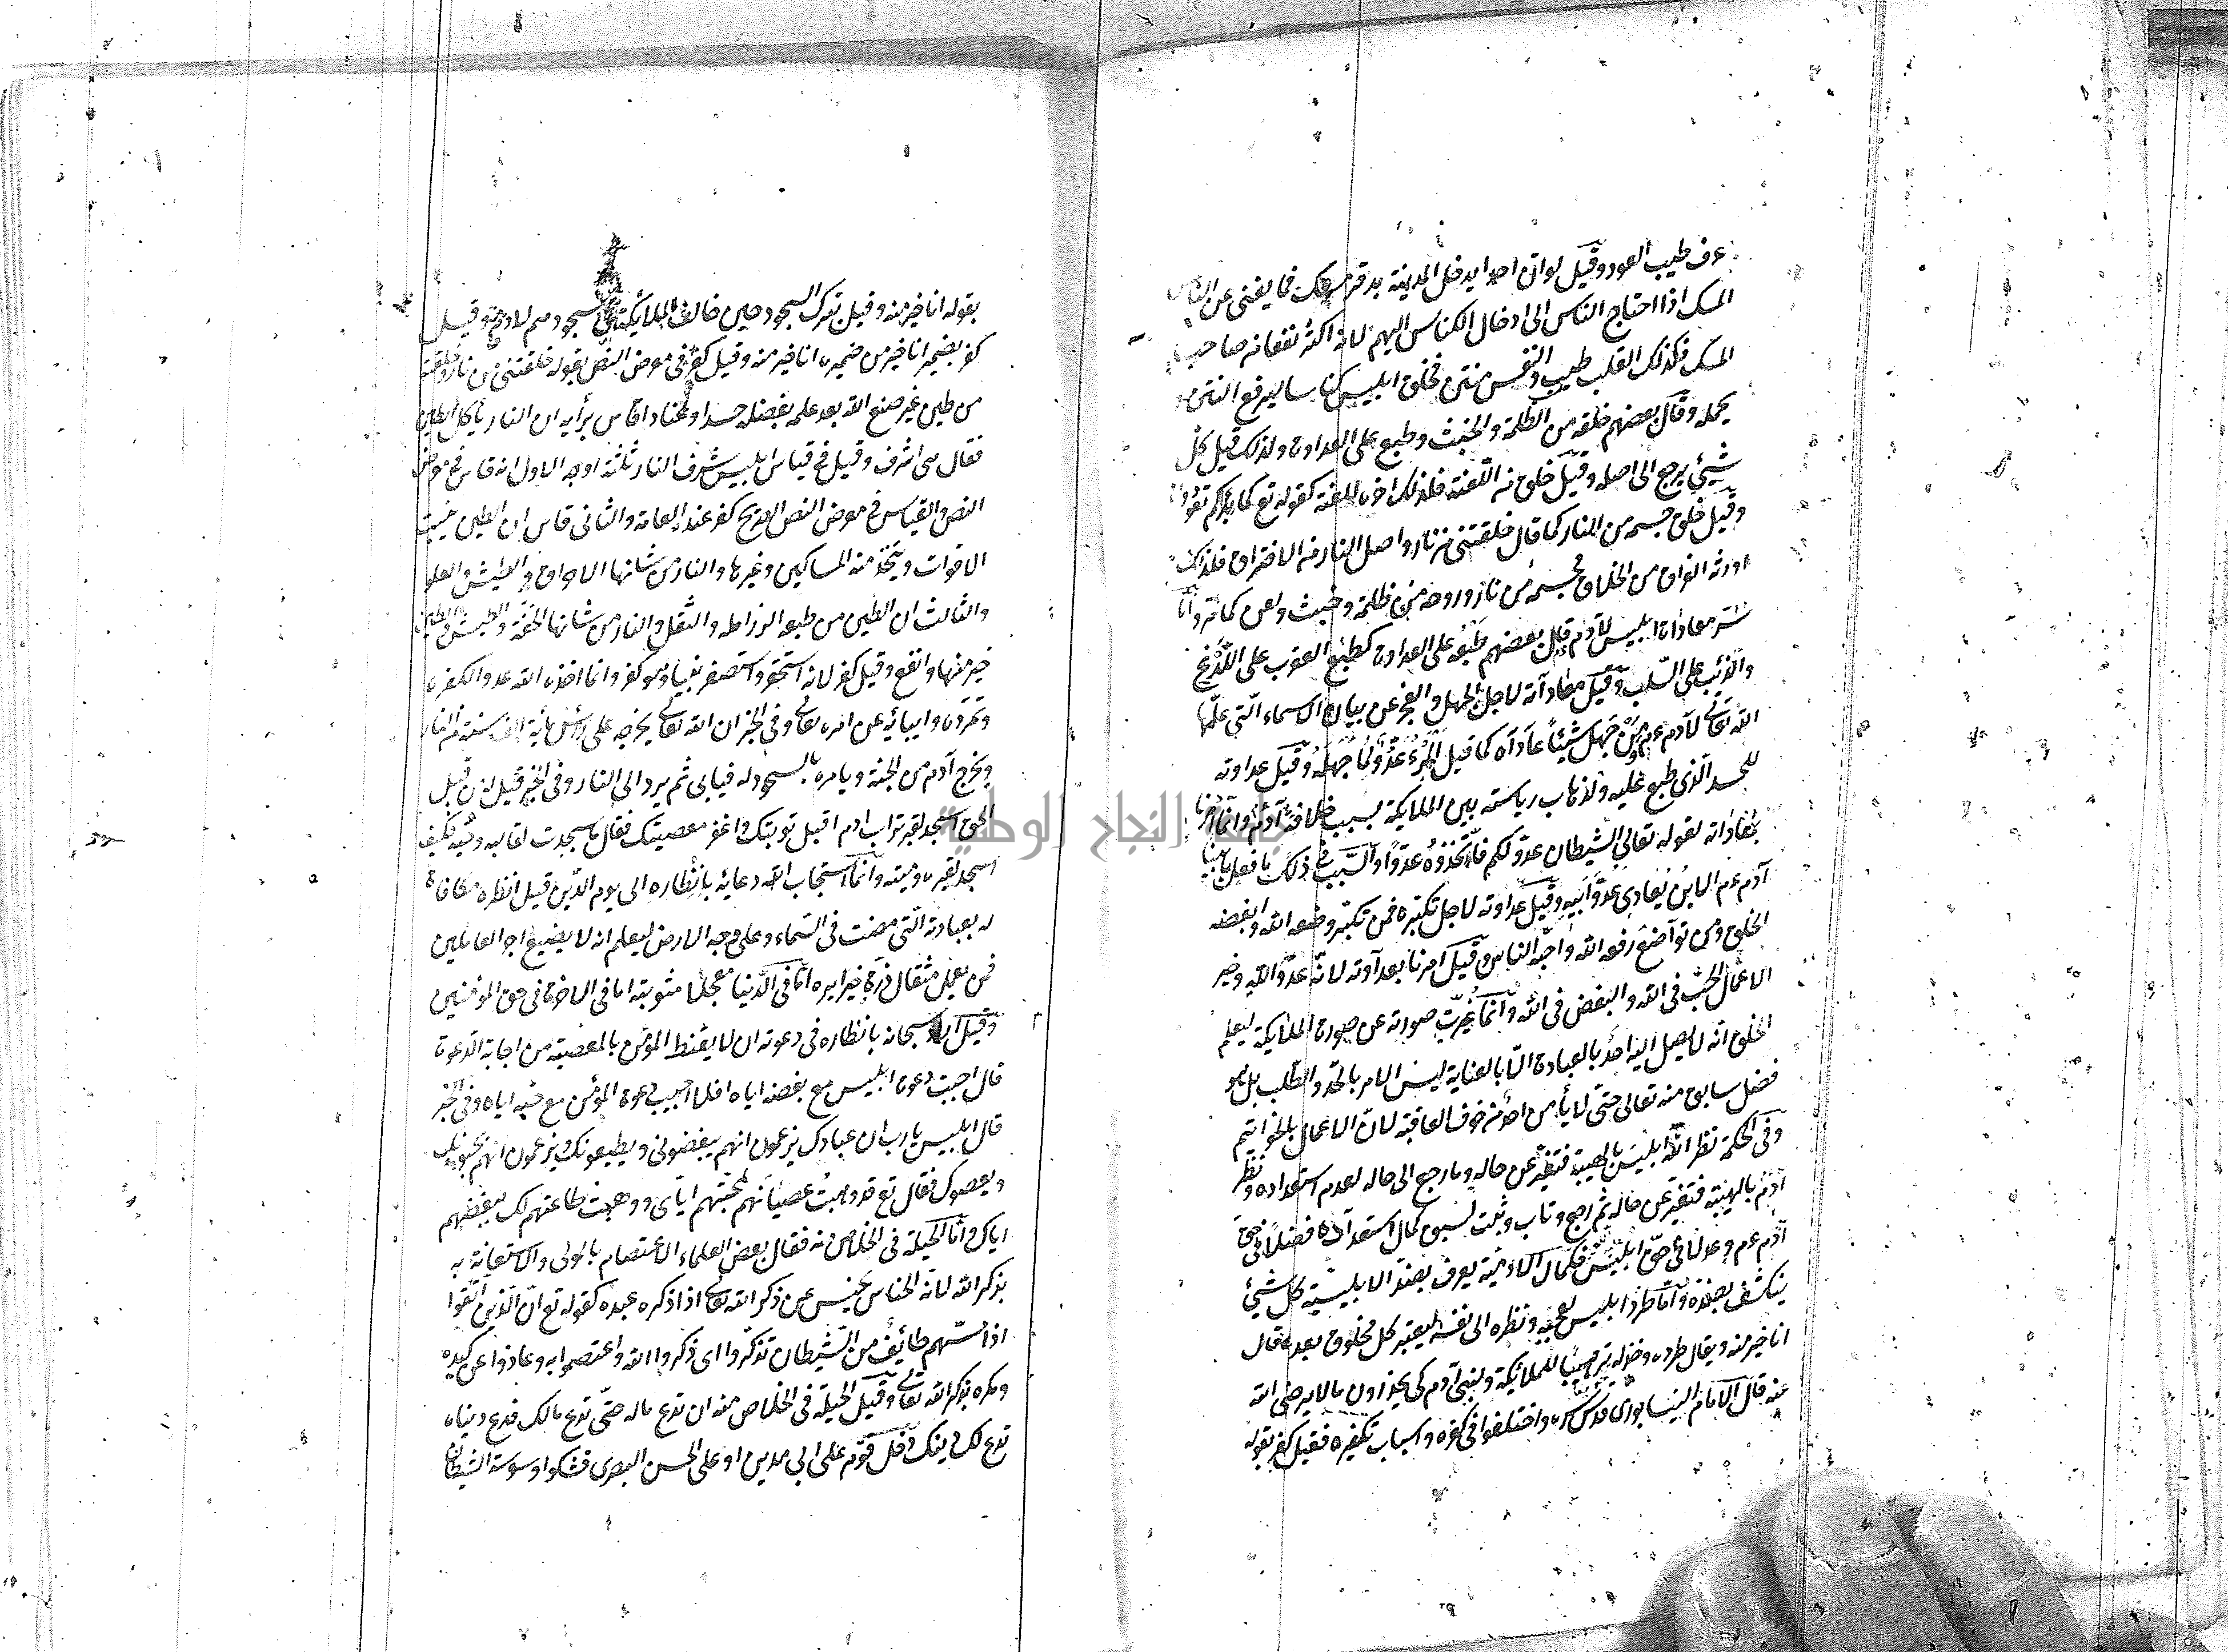 عرف طيب العود وقيل لو ان احدا يدخل المدينة بدقر مسك فما يغنى عن الناس
المسك اذا احتاج الناس الى ادخال الكناس اليهم لانه اكثر نفعا من صاحب
المسك فكذلك القلب طيب والنفس منتن فخلق ابليس كناسا ليرفع النتن
يحمله وقال بعضهم خلقه من الظلمة والخبث وطبع على العداوة ولذلك قيل كل
شيئ يرجع الى اصله وقيل خلق من اللعنة فلذلك اخره اللعنة كقوله تع كما بداكم تعودون
وقيل خلق جسمه من النار كما قال خلقتنى من نار واصل النار من الافتراق فلذلك
اورثه الفراق من الخلاق فجسمه من نار وروحه من ظلمة وخبث ولعن كما مر واما
سر معادات ابليس لآدم قيل بعضهم طبعه على العداوة كطبع العقرب على اللدغ
والذئب على السلب وقيل معاداته لاجل الجهل والعجز عن بيان الاسماء التى علمها
الله تعالى لآدم عم ومن جهل شيئا عاداه كما قيل المرء عدو لما جهله وقيل عداوته
للحسد الذى طبع عليه ولذهاب رياسته بين الملايكة بسبب خلافة آدم وانما امرنا
بمعاداته لقوله تعالى الشيطان عدو لكم فاتخذوه عدوا والسبب فى ذلك ما فعل بابينا
آدم عم الابن يعادى عدو ابيه وقيل عداوته لاجل تكبره فمن تكبر وضعه الله وابغضه
الخلق ومن تواضع رفعه الله واحبه الناس وقيل امرنا بعداوته لانه عدو الله وخير
الاعمال الحب فى الله والبغض فى الله وانما غيرت صورته عن صورة الملايكة ليعلم
الخلق انه لا يصل الينا احد بالعبادة الا بالعناية ليس الامر بالجد والطلب بل هو
فضل سابق منه تعالى حتى لا يأمن احد من خوف العاقبة لان الاعمال بالخواتيم
وفى الحكمة نظر الله ابليس بالهيبة فتغير عن حاله وما رجع الى حاله لعدم استعداده ونظر
آدم بالهيبة فتغير عن حاله ثم رجع وتاب وثبت لسبق كمال استعداده فضلا فى حق
آدم عم وعدلا فى حق ابليس فكمال الآدمية يعرف بضد الابليسية كل شيئ
ينكشف بضده واما طرد ابليس لعجبه ونظره الى نفسه ليعتبر كل مخلوق بعده قال
انا خير منه ويقال طرده وخوله ترهيبا للملائكة ولبنى آدم كى يحذرون ما لا يرضى الله
عنه قال الامام النيسابورى قدس سره واختلفوا فى كفره واسباب تكفيره فقيل كفر بقوله
بقوله انا خير منه وقيل بترك السجود حين خالف الملائكة فى سجودهم لادم وقيل
كفر بضميرانا خير من ضميره انا خير منه وقيل كفر فى موضع النص بقوله خلقتنى من نار وخلقته
من طين غير صنع الله بعد علمه بفضله حسدا وقاس برأيه ان النار تأكل الطين
فقال هى اشرف وقيل فى قياس ابليس شرف النار ثلثة اوجه الاول انه قاس فى موضع
النص والقياس فى موضع النص الصريح كفر عند العامة والثانى قاس ان الطين ينبت
الاقوات ويتخذ منه المساكين وغيرها والنار من شانها الاحراق والطيش والعلو
والثالث ان الطين من طبعه الرزاعة والثقل والنار من شانها الخفة والطيش والطين
خير منها وانفع وقيل كفر لانه استحقر واستصغر نبيا وهو كفر وانما اخذه الله عدوا لكفره
وتمرده وابائه عن امره تعالى وفى الخبر ان الله تعالى يخرجه على رأس مأية الف سنة من النار
ويخرج آدم من الجنة ويامره بالسجود له فيابى ثم يرد الى النار وفى الخبر قيل له من قبل
الحق اسجد لقبر تراب ادم اقبل توبتك واغفر معصيتك فقال ما سجدت لقالبه وحيه فكيف
اسجد لقبره وميته وانما استجاب الله دعائه بانظاره الى يوم الدين قيل انظره مكافاة
له بعبادته التى مضت فى السماء وعلى وجه الارض ليعلم انه لا يضيع اجر العاملين
فمن يعمل مثقال ذرة خيرا يره اما فى الدنيا معجلا مثوبته اما فى الاخرة فى حق المؤمنين
وقيل سبحانه بانظاره فى دعوته ان لا يقنط المؤمن بالمعصية من اجابة الدعوة
قال اجبت دعوة ابليس مع بغضه اياه افلا اجيب دعوة المؤمن مع حبه اياه وفى الخبر
قال ابليس يا رب ان عبادك يزعمون انهم يبغضونى ويطيعونك ويزعمون انهم يحبونك
ويعصوك فقال تع قد وهبت عصيانهم لمحبتهم اياى ووهبت طاعتهم لك ببغضهم
اياك واما الحيلة فى الخلاص منه فقال بعض العلماء الاعتصام بالمولى والاستعانة به
بذكر الله لانه الخناس يخنس عن ذكر الله تعالى اذا ذكره عبده كقوله تع ان الذين اتقوا
اذا مسهم طائف من الشيطان تذكروا اى ذكروا الله واعتصموا به وعاذوا عن كيده
ومكره بذكر الله تعالى وقيل الحيلة فى الخلاص منه ان تدع ماله حتى تدع مالك فدع دنياه
تدع لك دينك دخل قوم على ابى مدين او على الحسن البصرى فشكوا وسوسة الشيطان
جامعة النجاح الوطنية